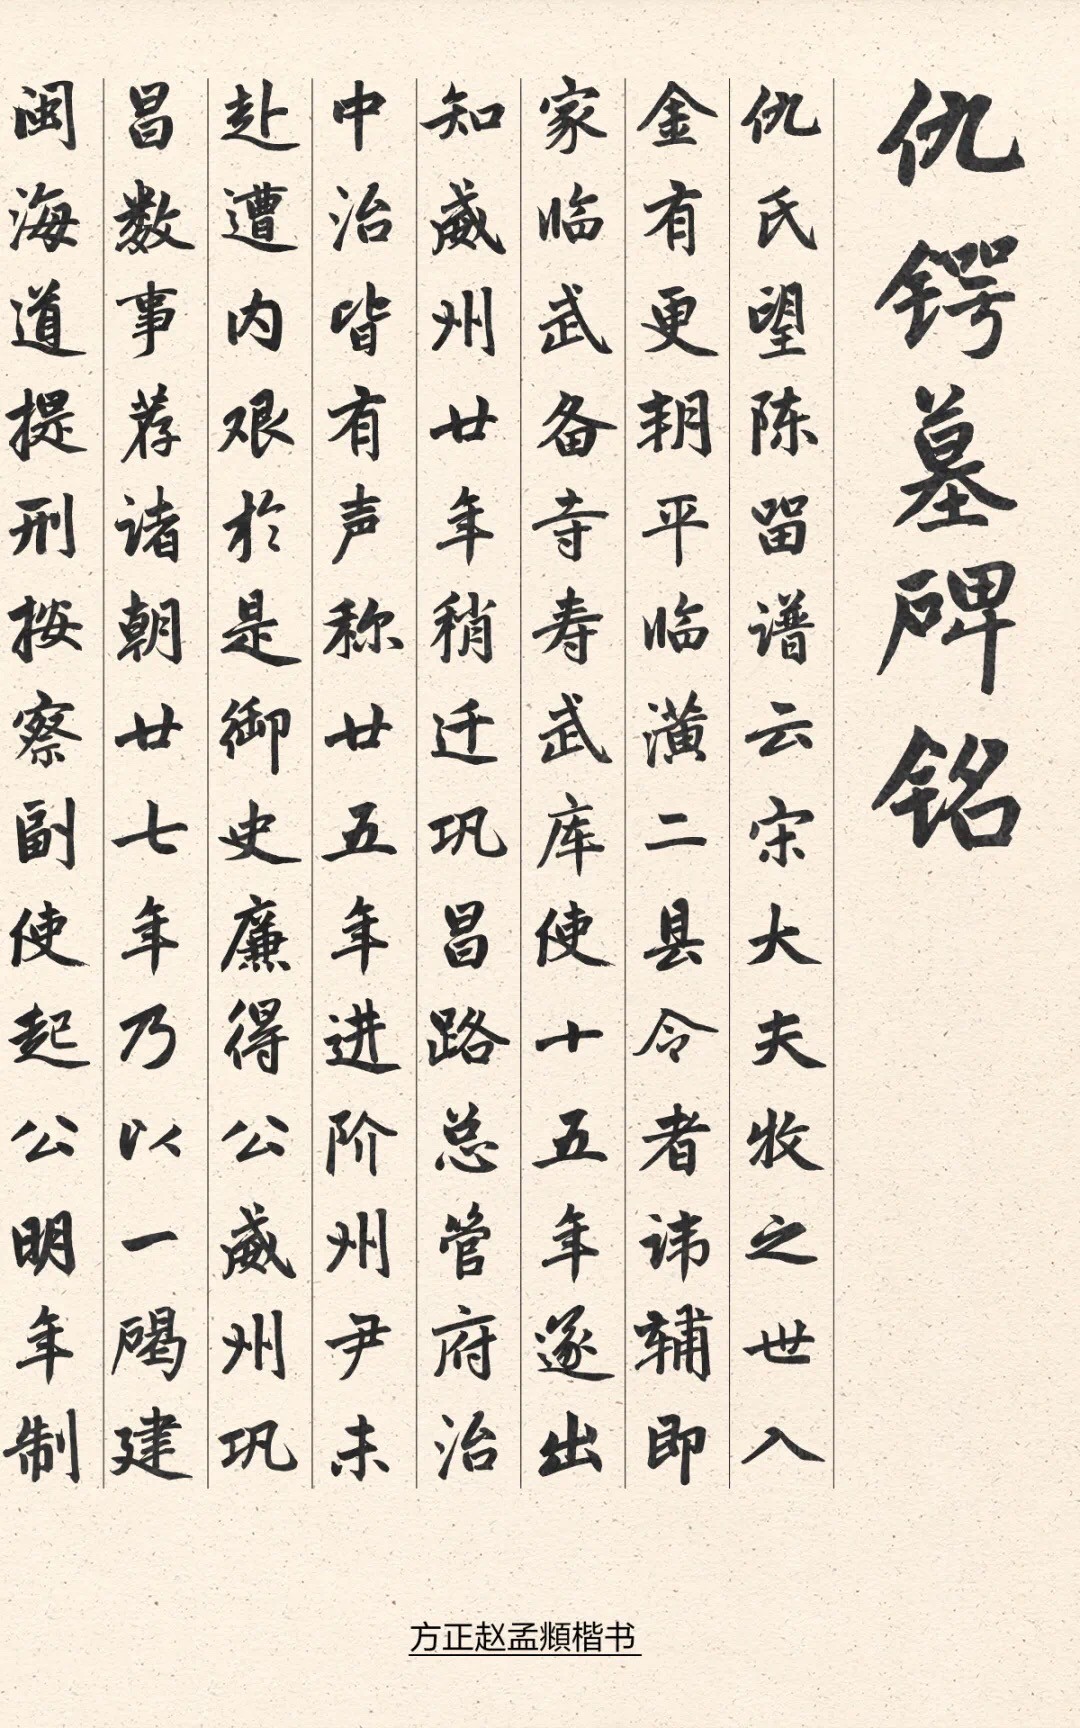 仇锷墓碑铭
仇氏望陈留谱云宋大夫牧之世入
金有更朝平临潢二县令者讳辅即
家临武备寺寿武库使十五年遂出
知威州廿年稍迁巩昌路总管府治
中治皆有声称廿五年进阶州尹未
赴遭内艰于是御史廉得公威州巩
昌数事荐诸朝廿七年乃以一碣建
闽海道提刑按察副使起公明年制
方正赵孟頫楷书